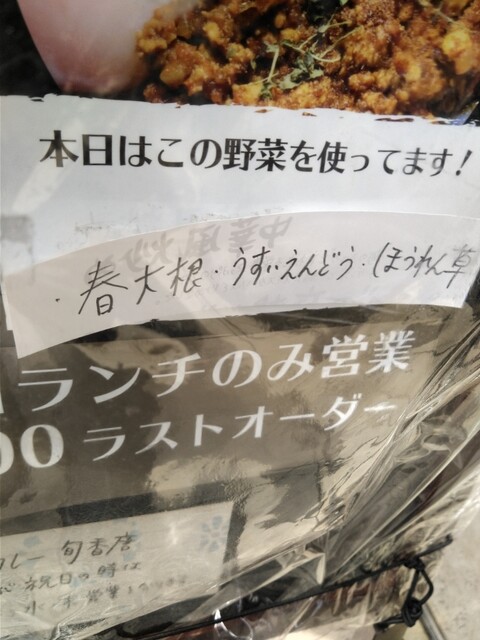 本日はこの野菜を使ってます!
・春大根・うすいえんどう・ほうれん草
ランチのみ営業
00 ラストオーダー
カレー 旬香唐
祝日の時は